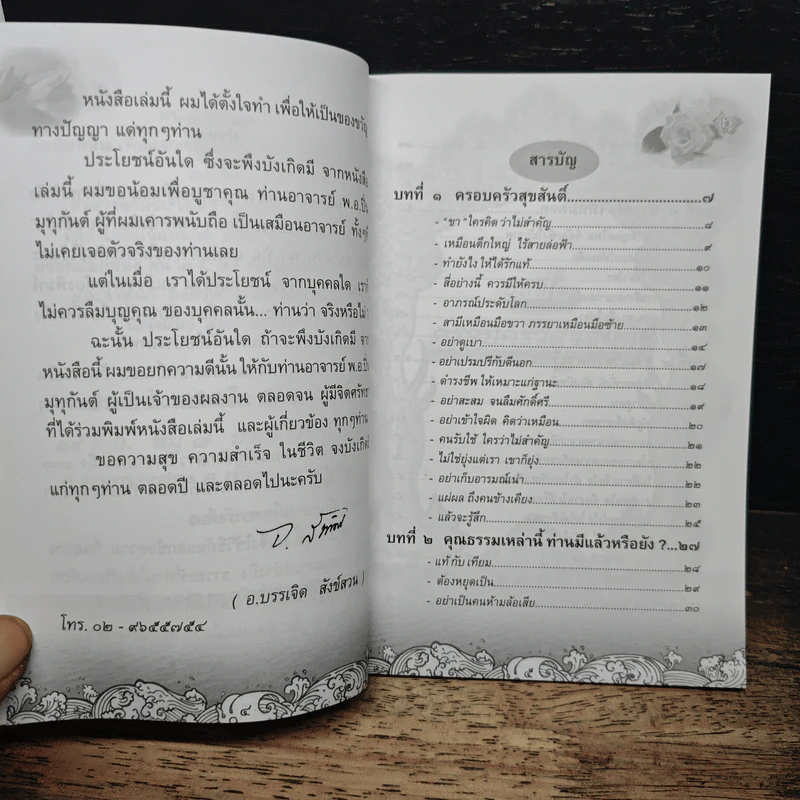 หนังสือเล่มนี้ ผมได้ตั้งใจทำ เพื่อให้เป็นของขวัญ
ทางปัญญา แด่ทุกๆท่าน
ประโยชน์อันใด ซึ่งจะพึงบังเกิดมี จากหนังสือ
เล่มนี้ ผมขอน้อมเพื่อบูชาคุณ ท่านอาจารย์ พ.อ.ปิ่น
มุทุกันต์ ผู้ที่ผมเคารพนับถือ เป็นเสมือนอาจารย์ ทั้งๆที่
ไม่เคยเจอตัวจริงของท่านเลย
แต่ในเมื่อ เราได้ประโยชน์ จากบุคคลใด เราก็
ไม่ควรลืมบุญคุณ ของบุคคลนั้น... ท่านว่า จริงหรือไม่
ฉะนั้น ประโยชน์อันใด ถ้าจะพึงบังเกิดมี จาก
หนังสือนี้ ผมขอยกความดีนั้น ให้กับท่านอาจารย์ พ.อ.ปิ่น
มุทุกันต์ ผู้เป็นเจ้าของผลงาน ตลอดจน ผู้มีจิตศรัทธา
ที่ได้ร่วมพิมพ์หนังสือเล่มนี้ และผู้เกี่ยวข้อง ทุกๆท่าน
ขอความสุข ความสำเร็จ ในชีวิต จงบังเกิด
แก่ทุกๆท่าน ตลอดปี และตลอดไปนะครับ
( อ.บรรเจิด สังข์สวน )
โทร. ๐๒ - ๙๖๕๕๗๕๔
๔
สารบัญ
บทที่ ๑ ครอบครัวสุขสันติ์...........................๗
- "ขา" ใครคิด ว่าไม่สำคัญ...........................๘
- เหมือนตึกใหญ่ ไร้สายล่อฟ้า...........................๙
- ทำยังไง ให้ได้รักแท้...........................๑๐
- สี่อย่างนี้ ควรมีให้ครบ...........................๑๑
- อาภรณ์ประดับโลก...........................๑๒
- สามีเหมือนมือขวา ภรรยาเหมือนมือซ้าย...........................๑๓
- อย่าดูเบา...........................๑๔
- อย่าเปรมปรีกับตีนอก...........................๑๗
- ดำรงชีพ ให้เหมาะแก่ฐานะ...........................๑๘
- อย่าสะสม จนลืมศักดิ์ศรี...........................๑๙
- อย่าเข้าใจผิด คิดว่าเหมือน...........................๒๐
- คนรับใช้ ใครว่าไม่สำคัญ...........................๒๑
- ไม่ใช่ยุ่งแต่เรา เขาก็ยุ่ง...........................๒๒
- อย่าเก็บอารมณ์เน่า...........................๒๒
- แผ่ผล ถึงคนข้างเคียง...........................๒๓
- แล้วจะรู้สึก...........................๒๕
บทที่ ๒ คุณธรรมเหล่านี้ ท่านมีแล้วหรือยัง ?...๒๗
- แท้ กับ เทียม...........................๒๘
- ต้องหยุดเป็น...........................๒๙
- อย่าเป็นคนห้ามล้อเสีย...........................๓๐
๕